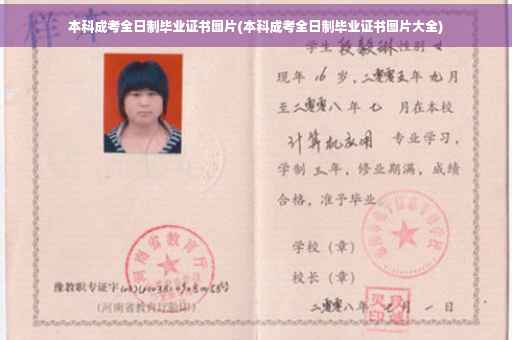 本科成考全日制毕业证书图片(本科成考全日制毕业证书图片大全)
样本
学生 段毅琳 性别 女
现年 16 岁,二零零五年 九月
至二零零八年 七 月在本校
计算机应用 专业学习,
学制 三 年,修业期满,成绩
合格,准予毕业
学校(章)
校长(章)
二零零八年 月 一 日
豫教职专证字
(河南省教育厅验印)
河南省教育厅